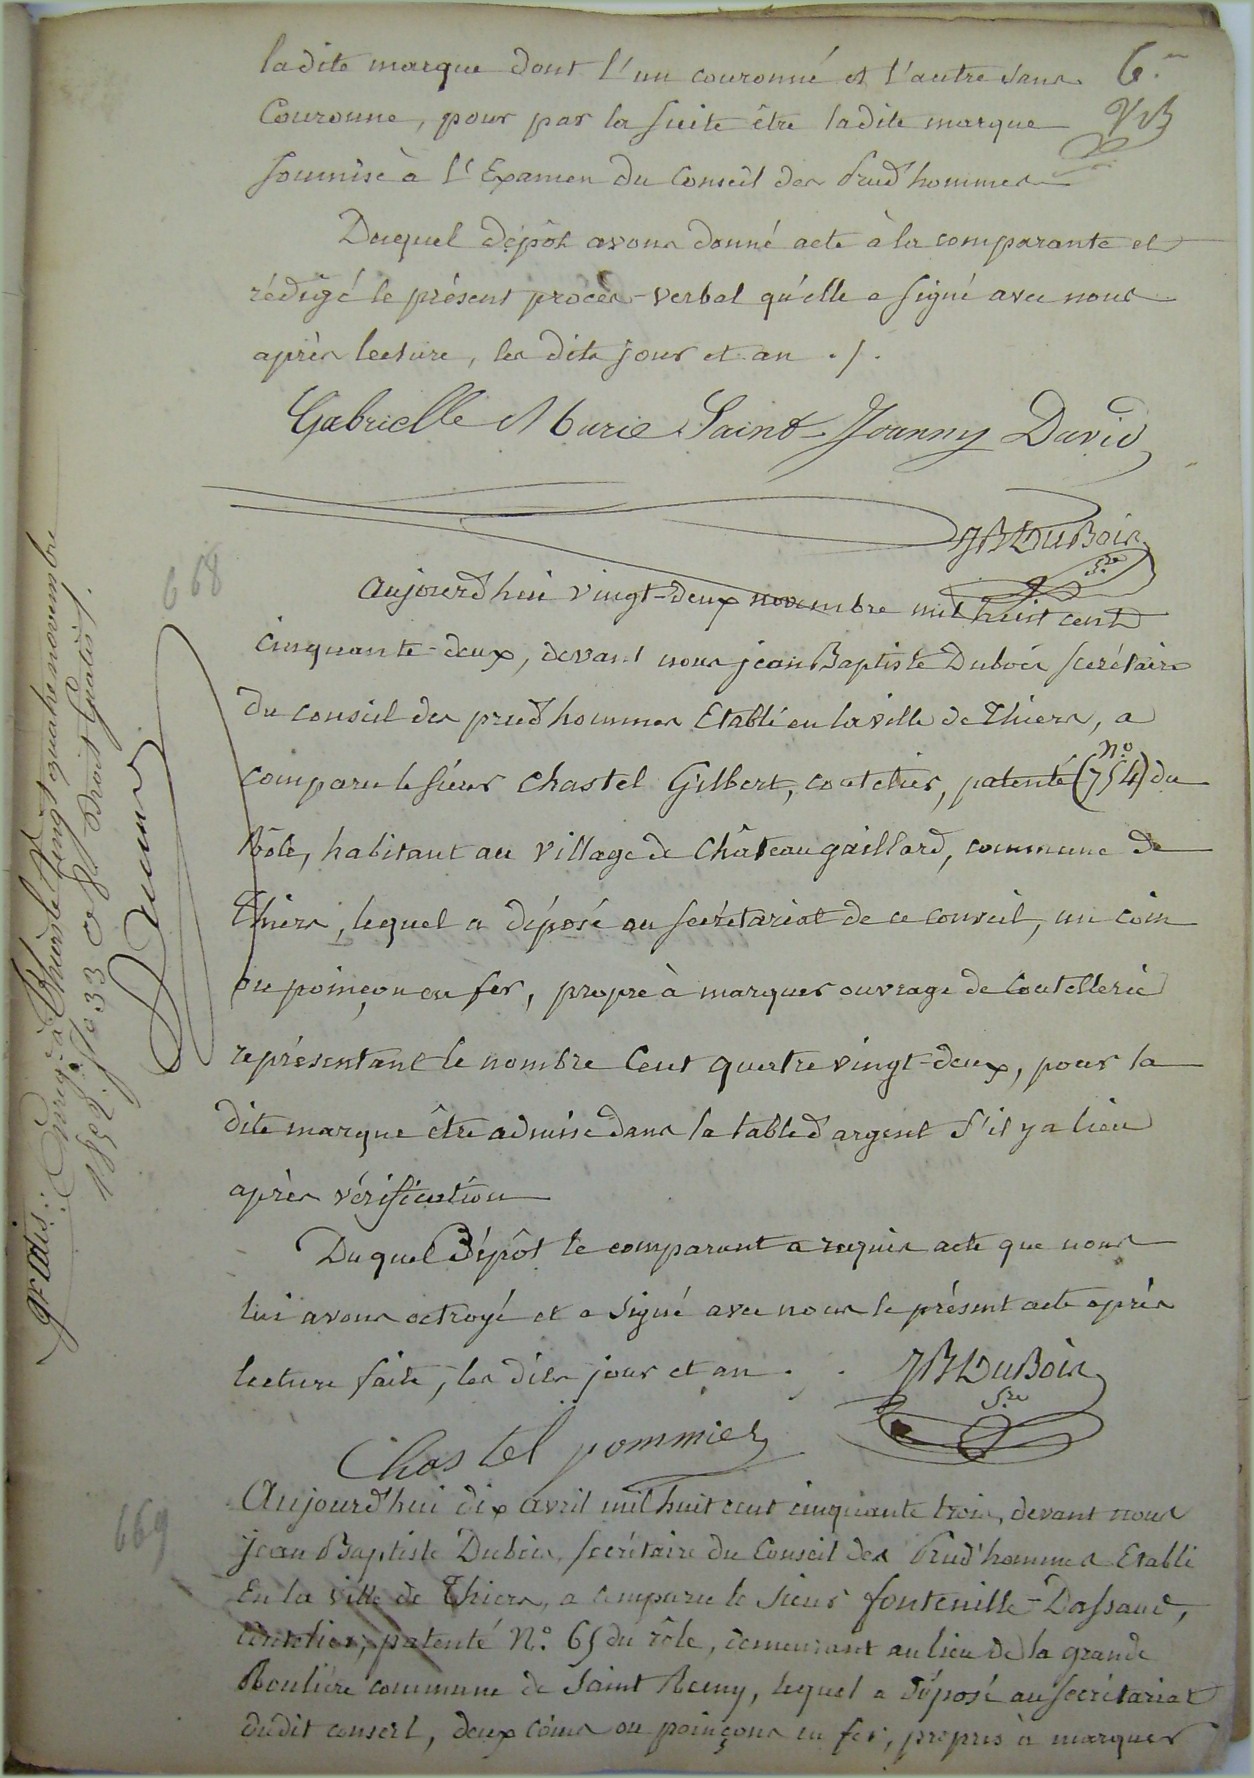 ladite marque dont l'un couronné et l'autre sans
Couronne, pour par la suite être ladite marque
soumise à l'Examen du Conseil des Prud'hommes
6.
Duquel dépôt avons donné acte à la comparante et
rédigé le présent procès-verbal qu'elle a signé avec nous
après lecture, les dits jour et an ./.
Gabrielle Marie Saint-Joanny David
JB DuBois
Sre
668
Aujourd'hui vingt-deux novembre mil huit cent
cinquante-deux, devant nous jean Baptiste Dubois secrétaire
du conseil des prud'hommes Etabli en la ville de Thiers, a
comparu le sieur Chastel Gilbert, coutelier, patenté (No 754) du
Rôle, habitant au village de Châteaugaillard, commune de
Thiers, lequel a déposé au secrétariat de ce conseil, un coin
ou poinçon en fer, propre à marquer ouvrage de Coutellerie
représentant le nombre Cent quatre vingt-deux, pour la
dite marque être admise dans la table d'argent s'il y a lieu
après vérification
Duquel Dépôt le comparant a requis acte que nous
lui avons octroyé et a signé avec nous le présent acte après
lecture faite, les dits jour et an . .
JB DuBois
Sre
Chastel pommier
gratis : Enreg.é à Thiers le vingt quatre novembre
1852. fo 33 Droit Gratis ./.
669
Aujourd'hui dix avril mil huit cent cinquante trois, devant nous
jean Baptiste Dubois, secrétaire du Conseil des Prud'hommes Etabli
En la ville de Thiers, a comparu le sieur fontenille-Dassaud,
coutelier, patenté No. 65 du rôle, demeurant au lieu de la grande
Roulière commune de Saint Remy, lequel a Déposé au secrétariat
dudit conseil, deux coins ou poinçons en fer, propres à marquer